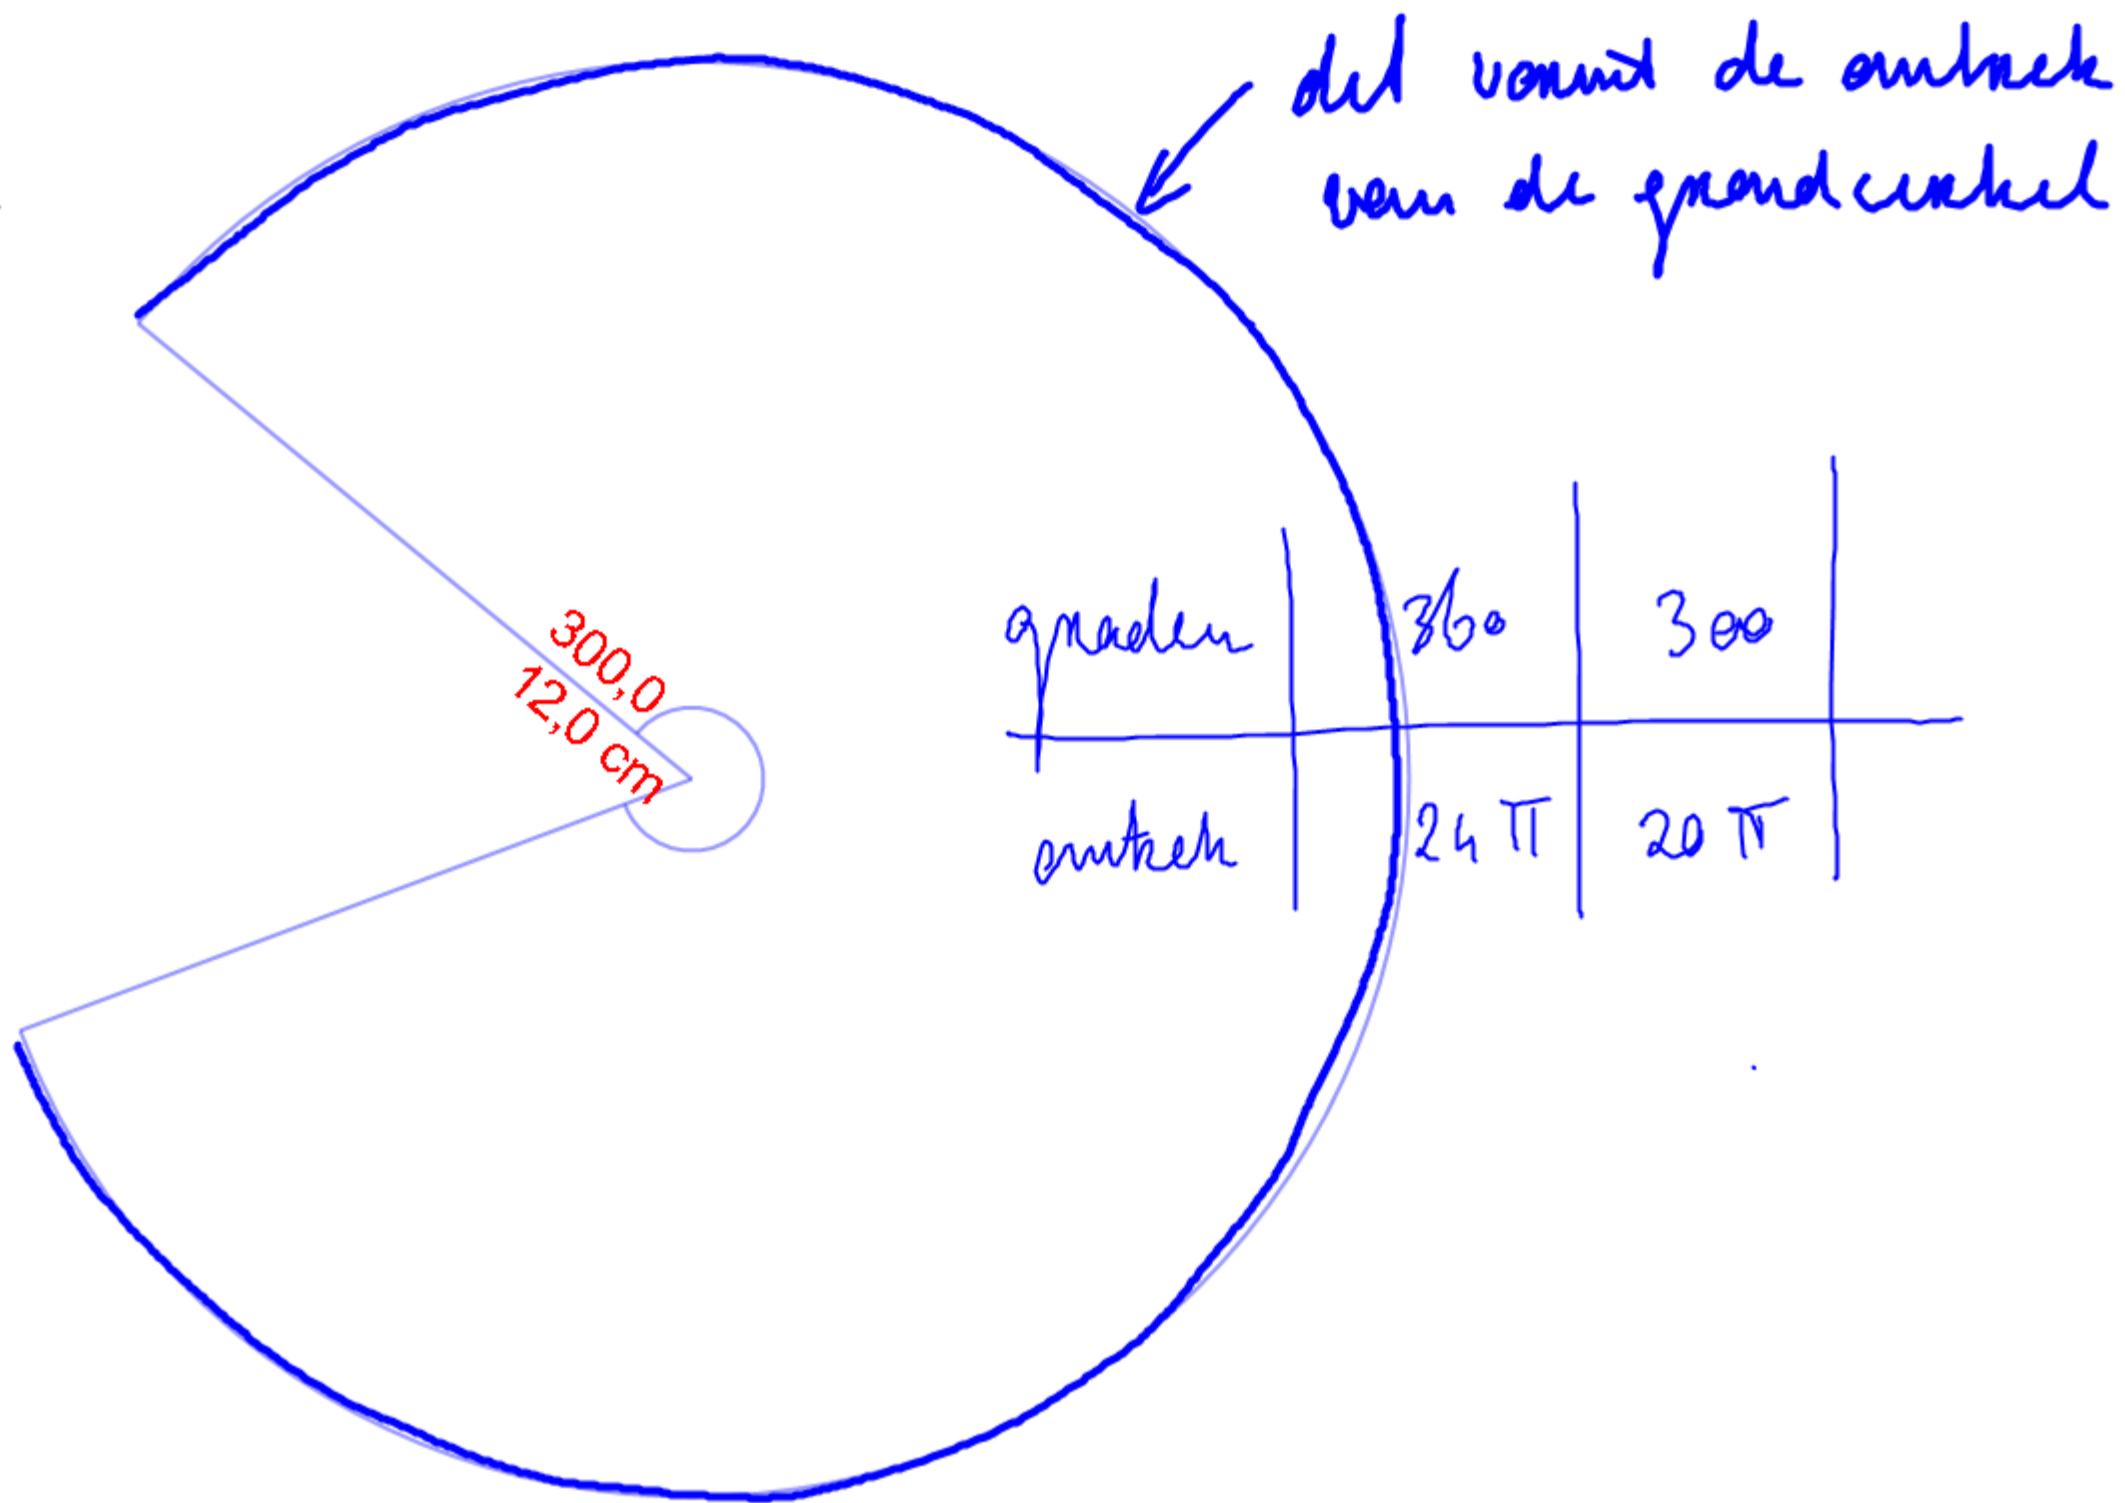 dit vormt de omtrek
van de grondcirkel
300,0
12,0 cm
graden 360 300
omtrek 24 π 20 π